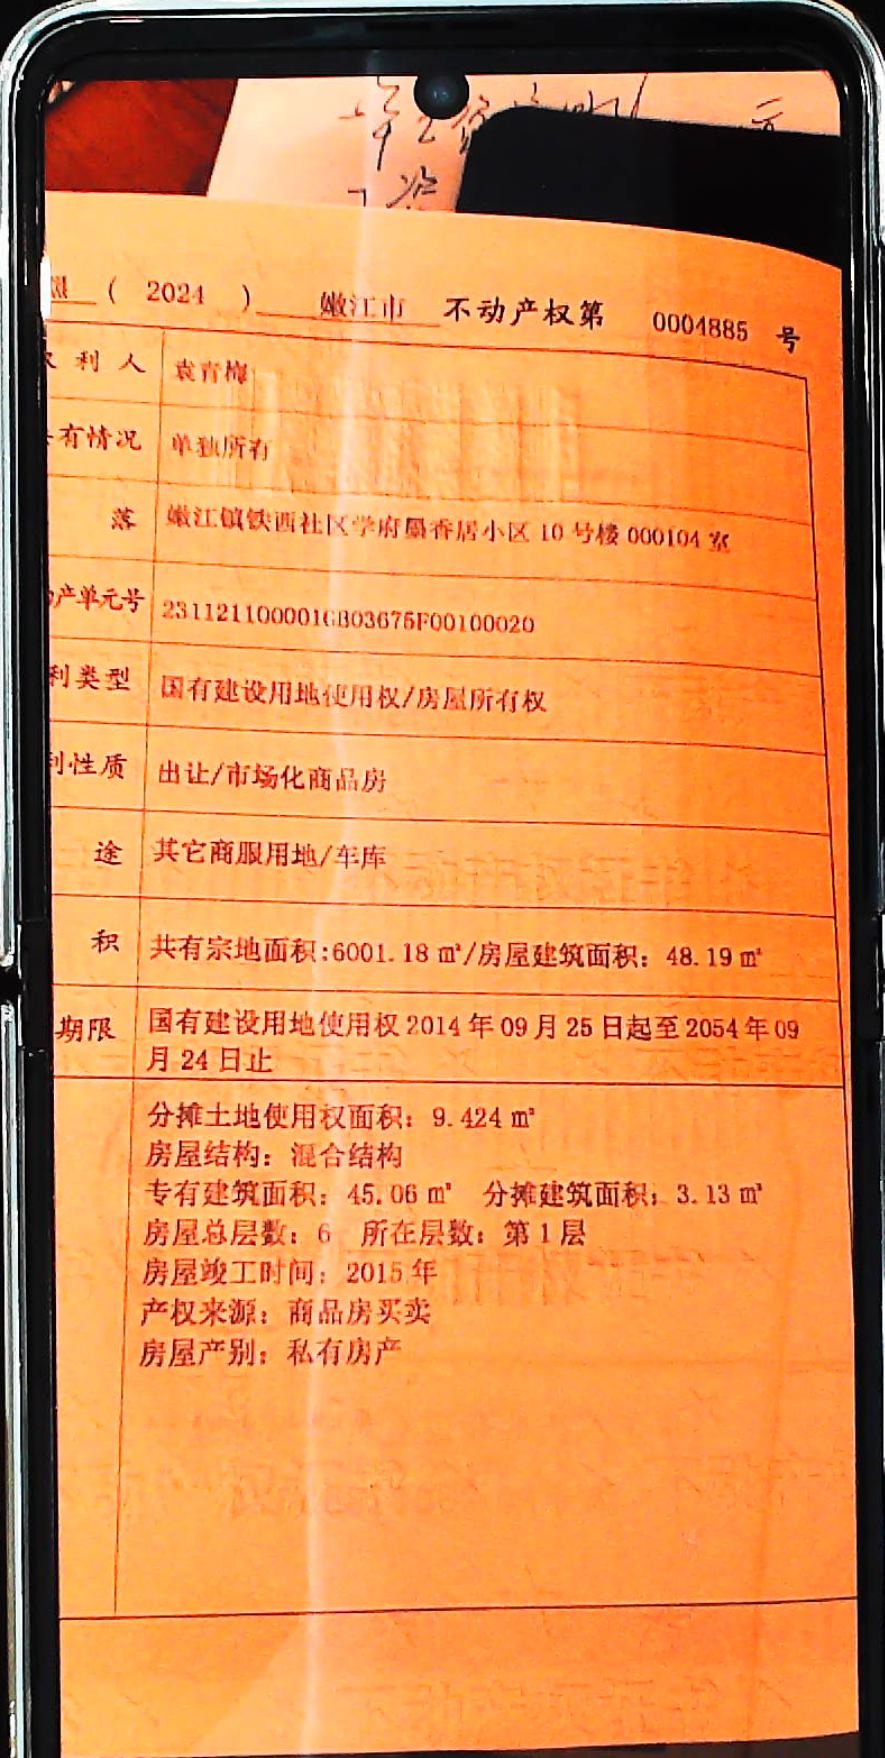 （ 2024 ） 嫩江市 不动产权第 0004885 号
利人 袁青梅
有情况 单独所有
落 嫩江镇铁西社区学府墨香居小区 10 号楼 000104 室
产单元号 231121100001GB03675F00100020
利类型 国有建设用地使用权/房屋所有权
性质 出让/市场化商品房
途 其它商服用地/车库
积 共有宗地面积:6001.18 ㎡/房屋建筑面积：48.19 ㎡
期限 国有建设用地使用权 2014 年 09 月 25 日起至 2054 年 09
月 24 日止
分摊土地使用权面积：9.424 ㎡
房屋结构：混合结构
专有建筑面积：45.06 ㎡ 分摊建筑面积：3.13 ㎡
房屋总层数：6 所在层数：第 1 层
房屋竣工时间：2015 年
产权来源：商品房买卖
房屋产别：私有房产